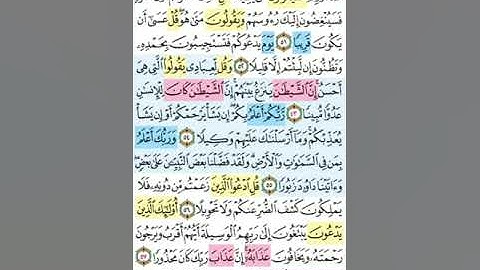 فَسَيُنْغِضُونَ إِلَيْكَ رُءُوسَهُمْ وَيَقُولُونَ مَتَىٰ هُوَ قُلْ عَسَىٰ أَن
يَكُونَ قَرِيبًا ٥١ يَوْمَ يَدْعُوكُمْ فَتَسْتَجِيبُونَ بِحَمْدِهِ
وَتَظُنُّونَ إِن لَّبِثْتُمْ إِلَّا قَلِيلًا ٥٢ وَقُل لِّعِبَادِى يَقُولُوا۟ ٱلَّتِى هِىَ
أَحْسَنُ إِنَّ ٱلشَّيْطَـٰنَ يَنزَغُ بَيْنَهُمْ إِنَّ ٱلشَّيْطَـٰنَ كَانَ لِلْإِنسَـٰنِ
عَدُوًّا مُّبِينًا ٥٣ رَّبُّكُمْ أَعْلَمُ بِكُمْ إِن يَشَأْ يَرْحَمْكُمْ أَوْ إِن يَشَأْ
يُعَذِّبْكُمْ وَمَآ أَرْسَلْنَـٰكَ عَلَيْهِمْ وَكِيلًا ٥٤ وَرَبُّكَ أَعْلَمُ
بِمَن فِى ٱلسَّمَـٰوَٰتِ وَٱلْأَرْضِ وَلَقَدْ فَضَّلْنَا بَعْضَ ٱلنَّبِيِّـۧنَ عَلَىٰ بَعْضٍ
وَءَاتَيْنَا دَاوُۥدَ زَبُورًا ٥٥ قُلِ ٱدْعُوا۟ ٱلَّذِينَ زَعَمْتُم مِّن دُونِهِۦ فَلَا
يَمْلِكُونَ كَشْفَ ٱلضُّرِّ عَنكُمْ وَلَا تَحْوِيلًا ٥٦ أُو۟لَـٰٓئِكَ ٱلَّذِينَ
يَدْعُونَ يَبْتَغُونَ إِلَىٰ رَبِّهِمُ ٱلْوَسِيلَةَ أَيُّهُمْ أَقْرَبُ وَيَرْجُونَ
رَحْمَتَهُۥ وَيَخَافُونَ عَذَابَهُۥٓ إِنَّ عَذَابَ رَبِّكَ كَانَ مَحْذُورًا ٥٧